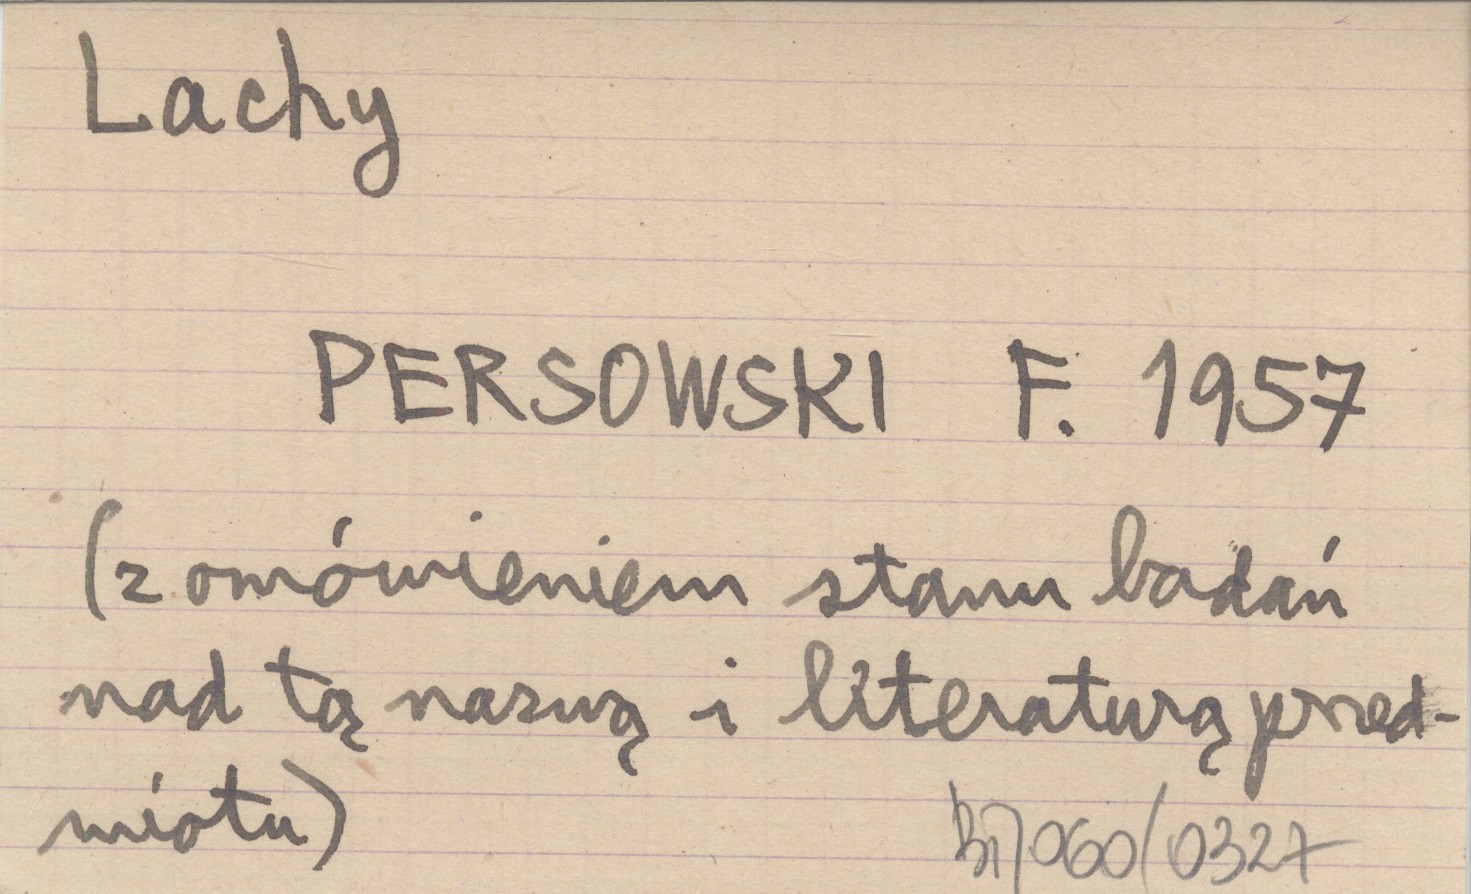 Lachy
PERSOWSKI F. 1957
(z omówieniem stanu badań
nad tą nazwą i literaturą przed-
miotu)
Bi/060/0327